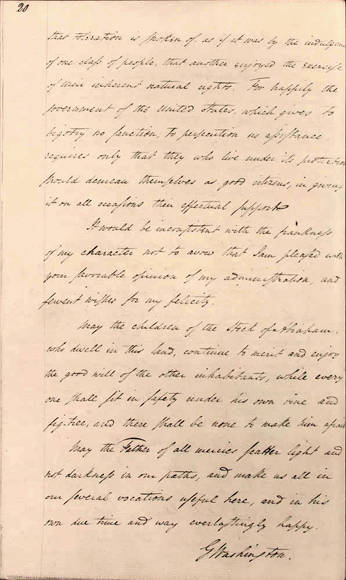 20
that toleration is spoken of as if it was by the indulgence
of one class of people, that another enjoyed the exercise
of their inherent natural rights. For happily the
Government of the United States, which gives to
bigotry no sanction, to persecution no assistance
requires only that they who live under its protection
should demean themselves as good citizens, in giving
it on all occasions their effectual support.
It would be inconsistent with the frankness
of my character not to avow that I am pleased with
your favorable opinion of my administration, and
fervent wishes for my felicity.
May the children of the Stock of Abraham,
who dwell in this land, continue to merit and enjoy
the good will of the other inhabitants, while every
one shall sit in safety under his own vine and
figtree, and there shall be none to make him afraid
May the Father of all mercies scatter light and
not darkness in our paths, and make us all in
our several vocations useful here, and in his
own due time and way everlastingly happy.
GWashington.